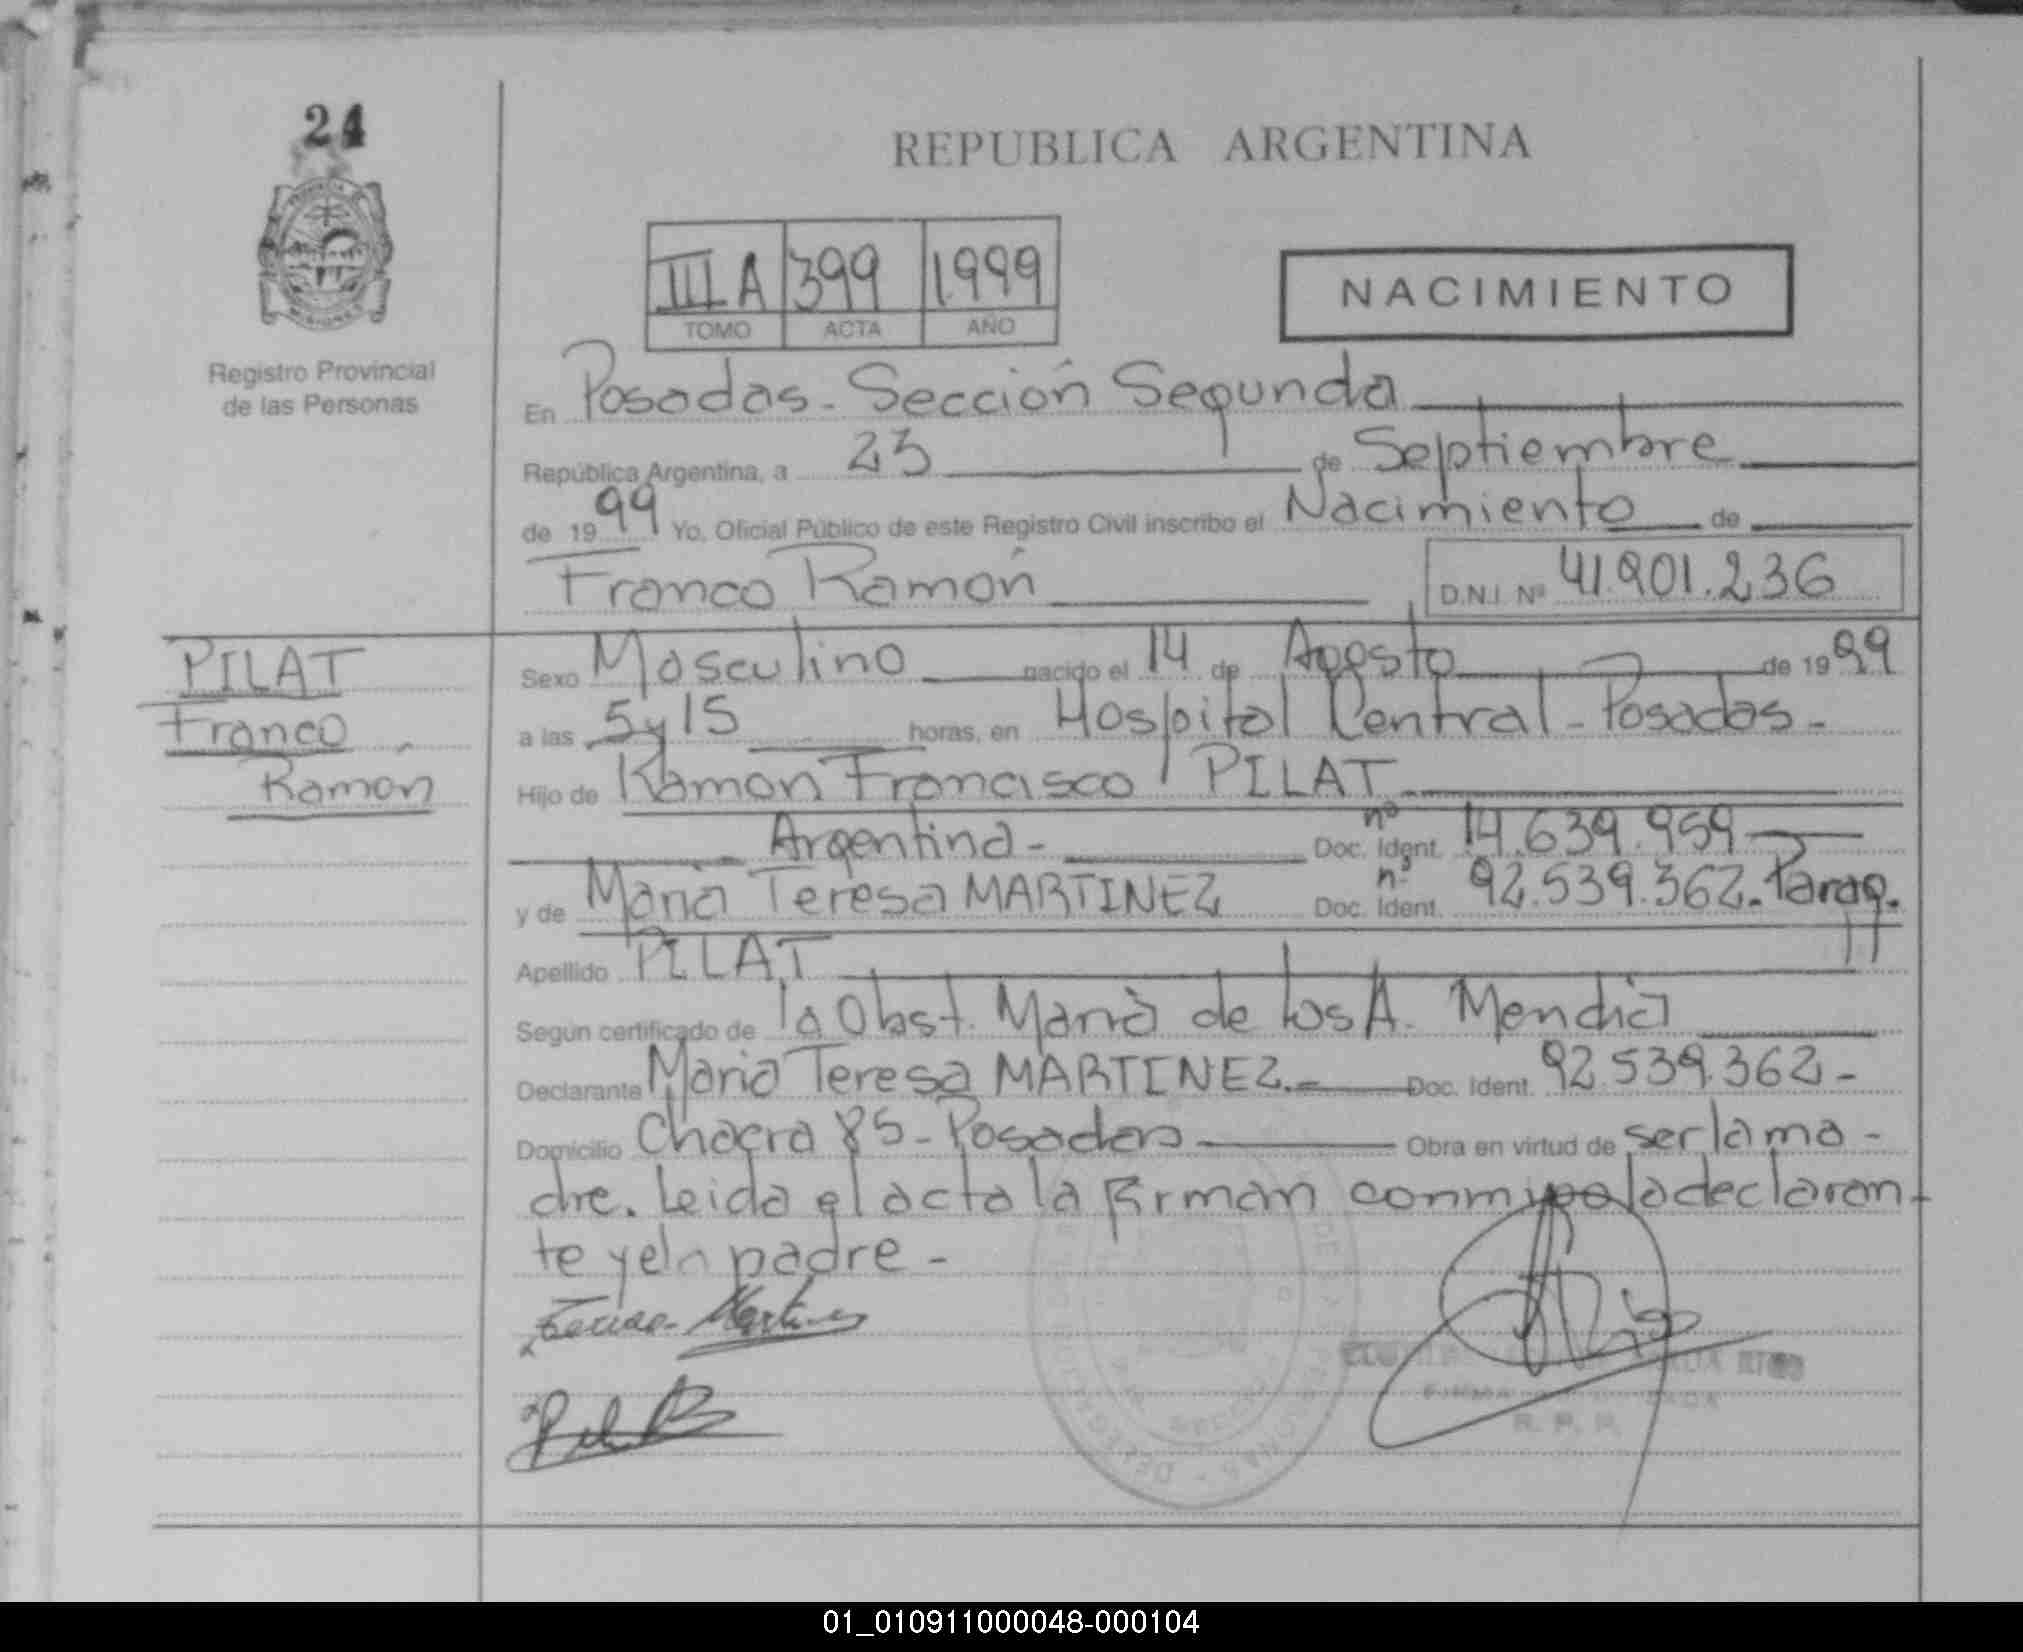 24
REPUBLICA ARGENTINA
III A 399 1.999
TOMO ACTA AÑO
NACIMIENTO
Registro Provincial
de las Personas
En Posadas - Sección Segunda
República Argentina, a 23 de Septiembre
de 1999 Yo, Oficial Público de este Registro Civil inscribo el Nacimiento de
Franco Ramón D.N.I. Nº 41.901.236
PILAT
Franco
Ramón
Sexo Masculino nacido el 14 de Agosto de 1999
a las 5 y 15 horas, en Hospital Central - Posadas -
Hijo de Ramon Francisco PILAT
Argentina - Doc. Ident. nº 14.639.959
y de Maria Teresa MARTINEZ Doc. Ident. nº 92.539.362. Parag.
Apellido PILAT
Según certificado de la Obst. Maria de los A. Mendia
Declarante Maria Teresa MARTINEZ.- Doc. Ident. 92.539.362 -
Domicilio Chacra 85 - Posadas Obra en virtud de ser la ma -
dre. Leida el acta la firman conmigo la declaran -
te y el padre -
Teresa Martinez
R. P. P.
01_010911000048-000104